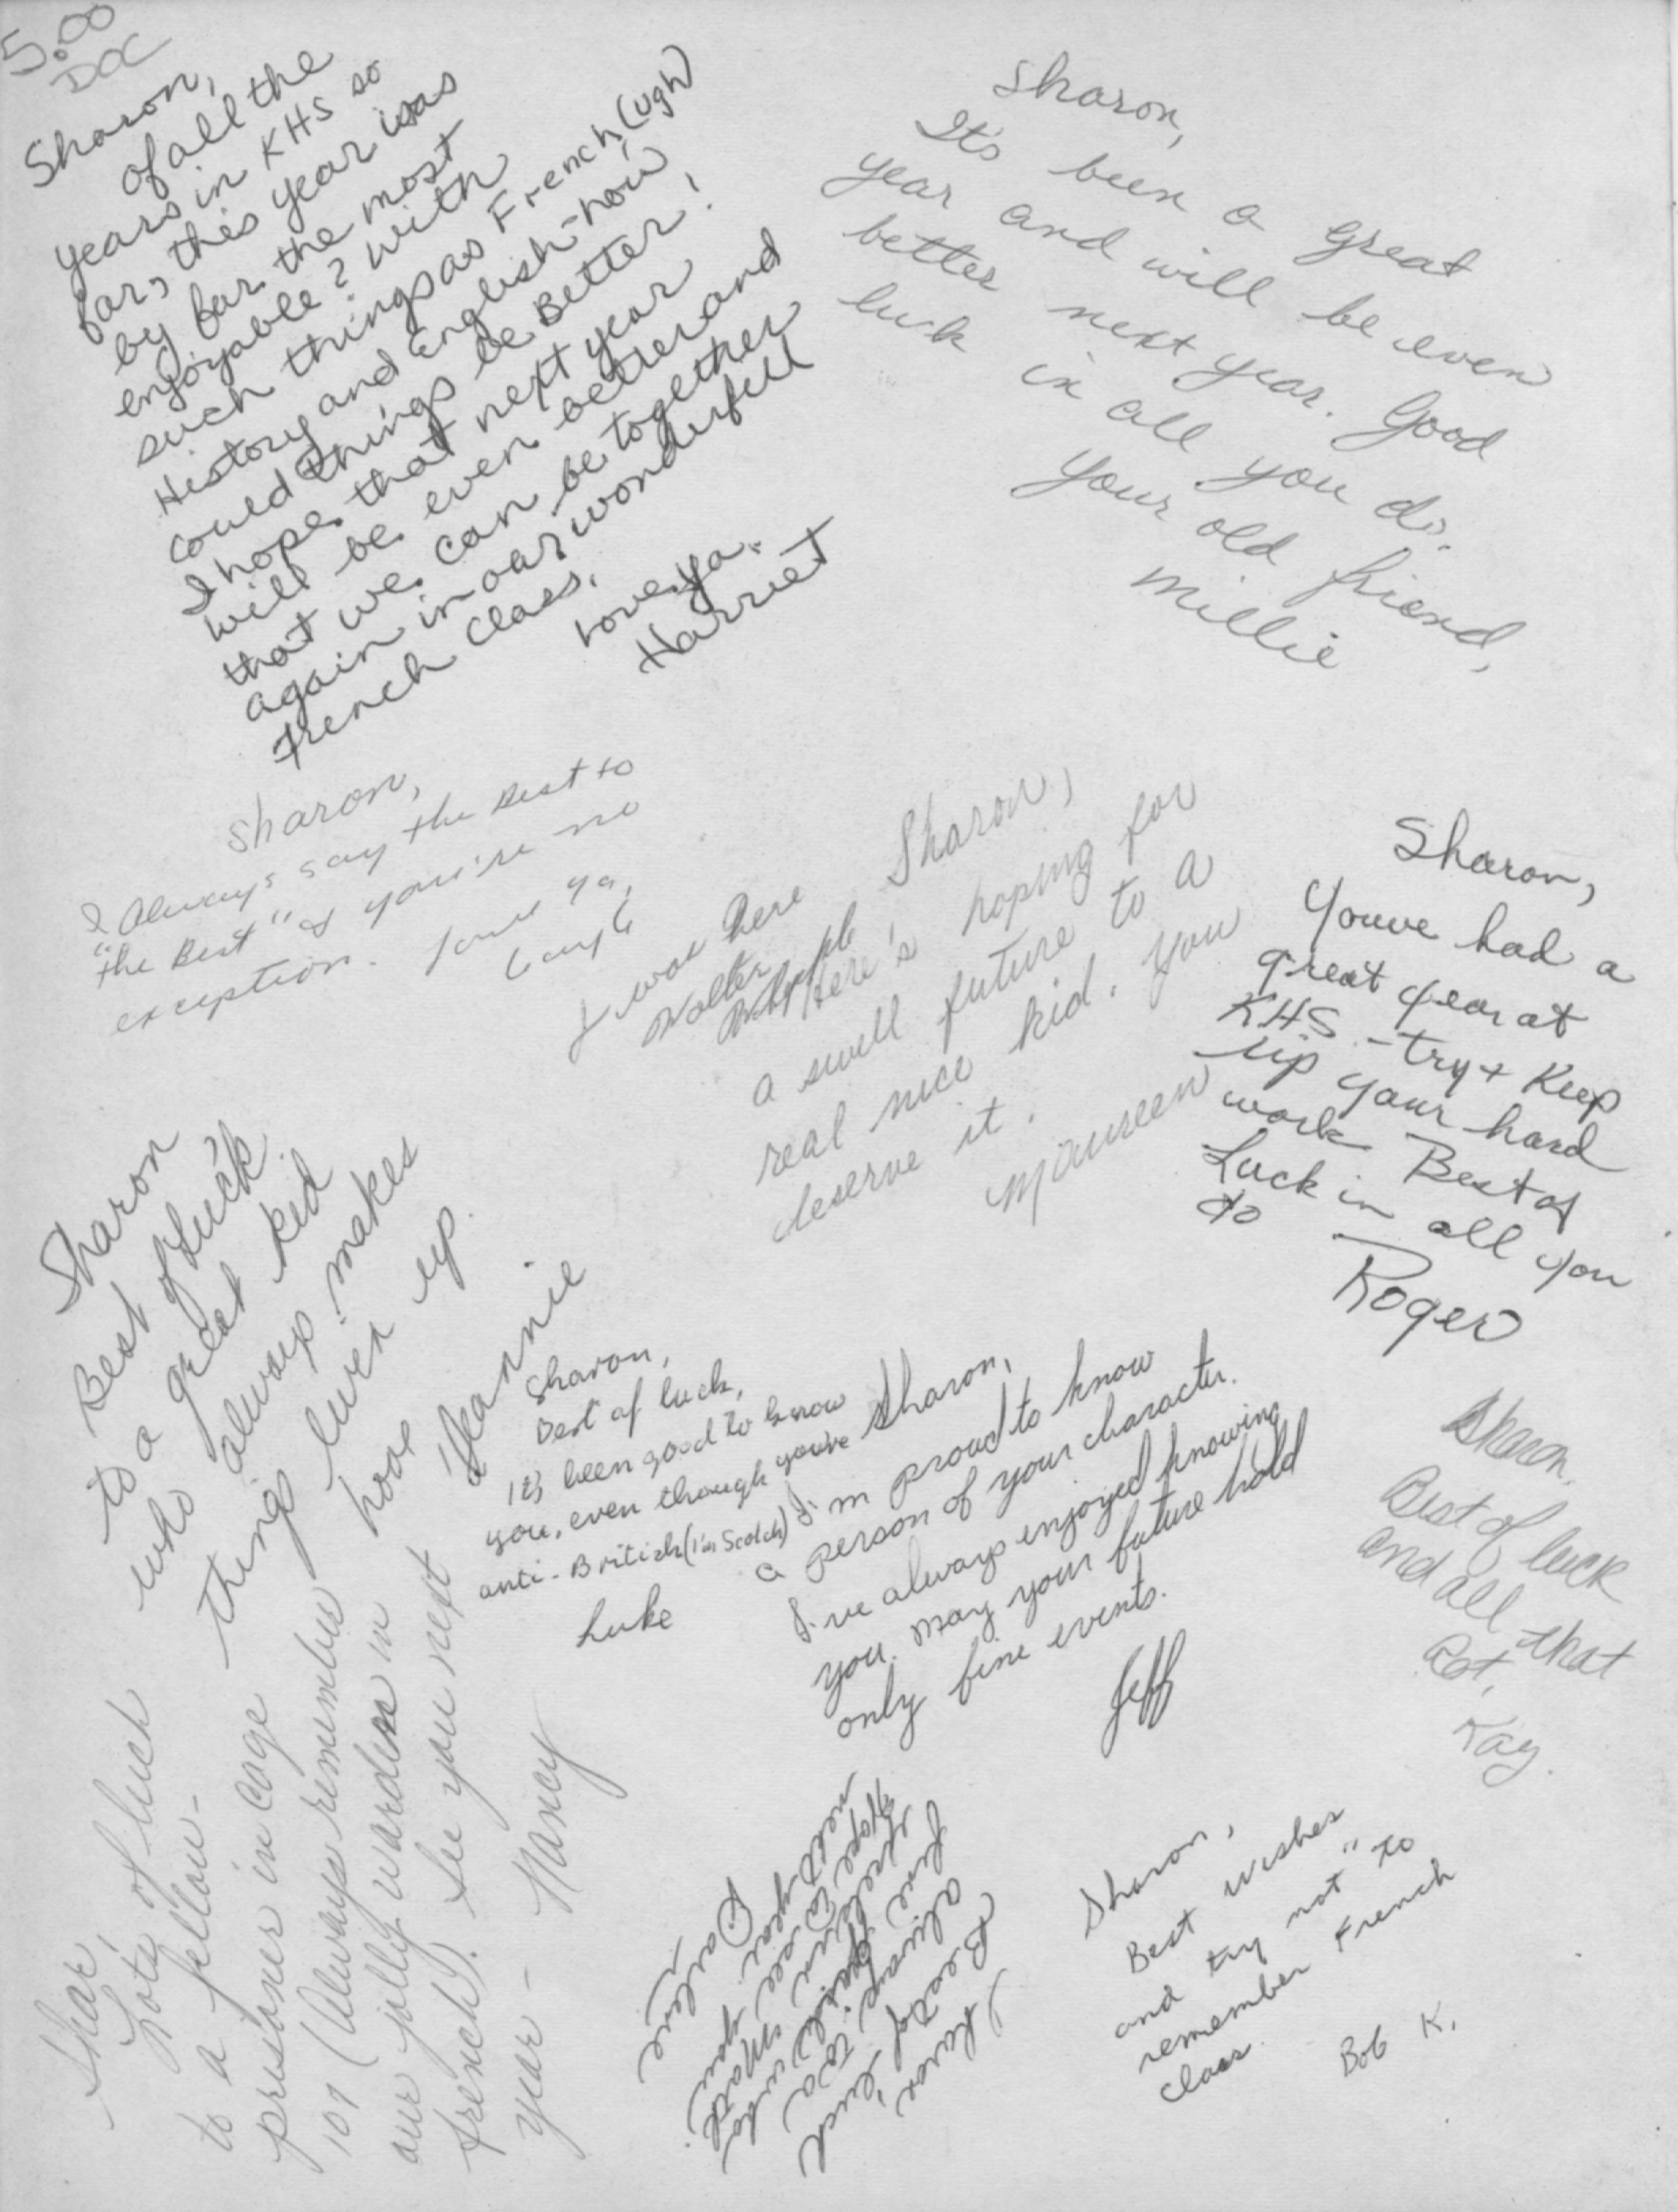 5.00
DOC
Sharon,
of all the
years in KHS so
far, this year was
by far the most
enjoyable? With
such things as French, (ugh)
History and English - how
could things be Better!
I hope that next year
will be even better and
that we can be together
again in our wonderfull
French class.
Love ya.
Harriet
Sharon,
It's been a great
year and will be even
better next year. Good
luck in all you do.
Your old friend,
Millie
Sharon,
I always say the Best to
"the Best" & you're no
exception. Love ya,
I was here
Walter
Sharon,
Here's hoping for
a swell future to a
real nice kid. You
deserve it.
Maureen
Sharon,
Youve had a
great year at
KHS - try + Keep
up your hard
work Best of
Luck in all you
do
Roger
Sharon
Best of Luck
to a great kid
who always makes
things liven up.
Jeannie
Sharon,
Best of luck,
It's been good to know
you, even though you're
anti-British (I'm Scotch)
Luke
Sharon,
I'm proud to know
a person of your character.
I've always enjoyed knowing
you. May your future hold
only fine events.
Jeff
Sharon,
Best of luck
and all that
Rot,
Kay
Shar,
Lots of luck
to a fellow-
prisoner in cage
107 (Always remember
our jolly warden in
french). See you next
year -
Nancy
Sharon
Best of luck
always to a
kid who
Math.
Hope to see you
next year
Carlore
Sharon,
Best wishes
and try "not" to
remember French
class.
Bob K.